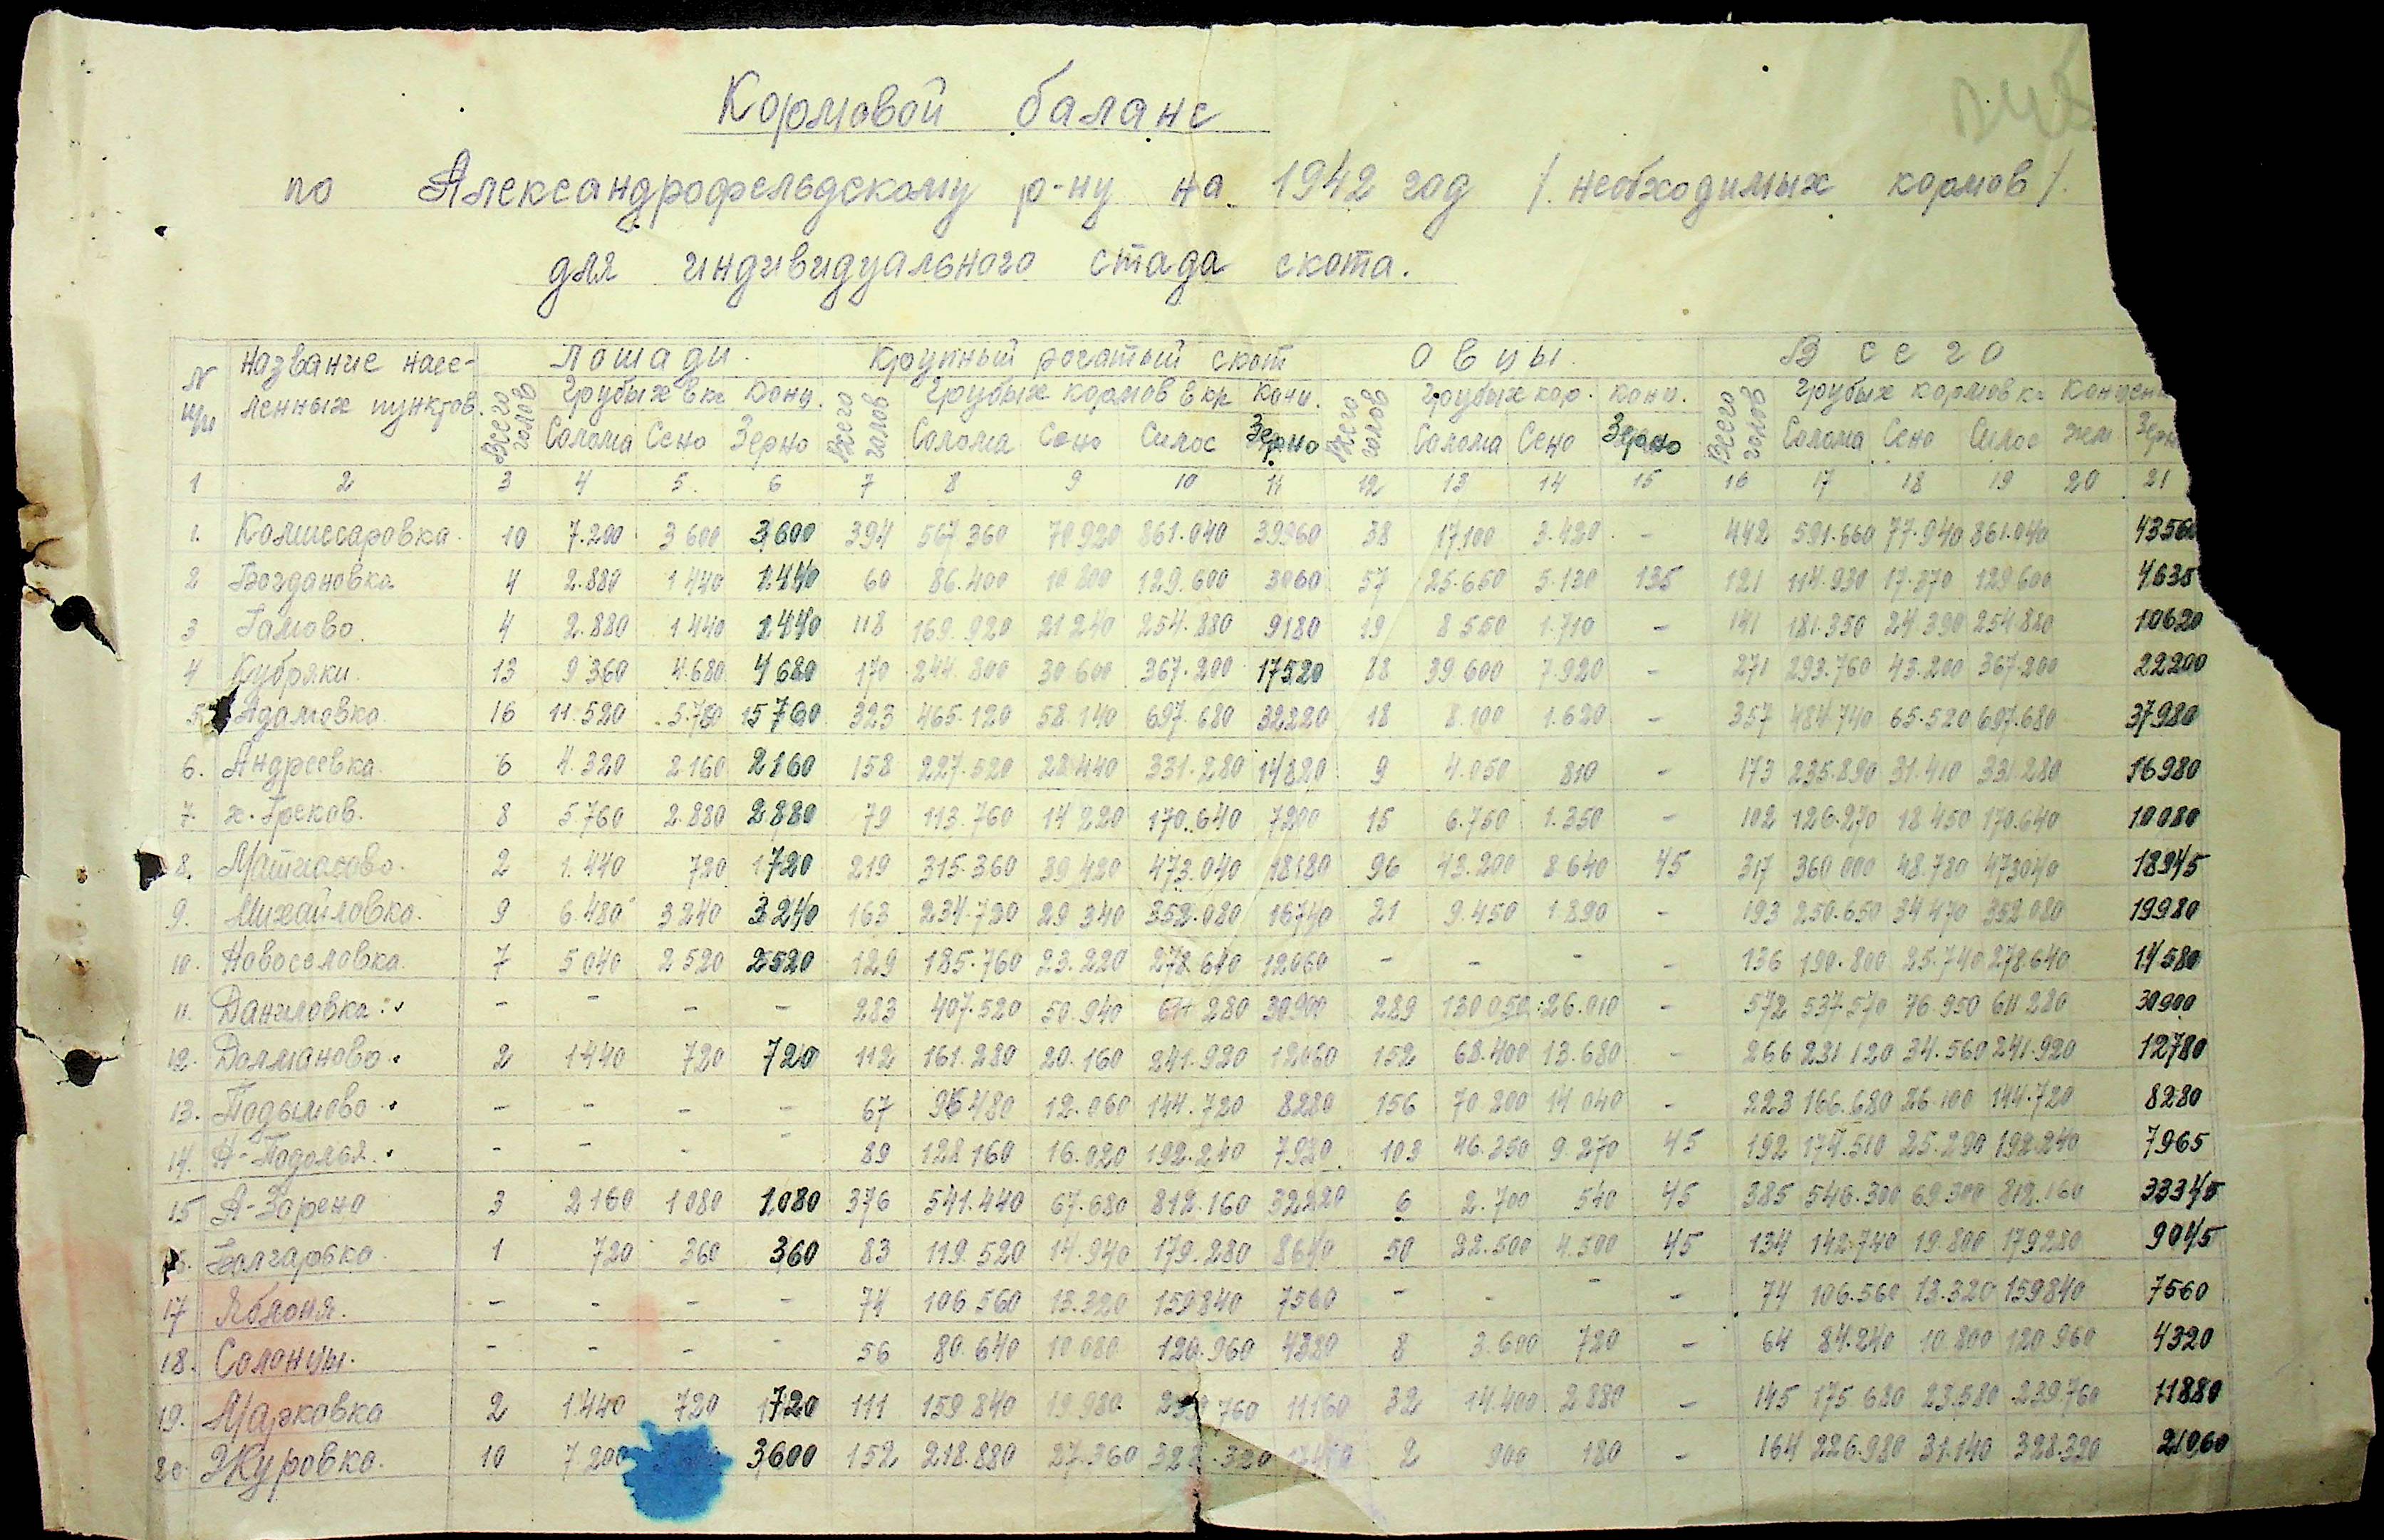 Кормовой баланс
по Александрофельдскому р-ну на 1942 год /необходимых кормов/.
для индивидуального стада скота.
N п/п Название насе- Лошади. Крупный рогатый скот Овцы. Всего
ленных пунктов. Всего голов Грубых в кг Конц. Всего голов Грубых кормов в кг Конц. Всего голов Грубых кор. Конц. Всего голов Грубых кормов кг Концен
Солома Сено Зерно Солома Сено Силос Зерно Солома Сено Зерно Солома Сено Силос жм Зерн
1 2 3 4 5. 6 7 8 9 10 11 12 13 14 15 16 17 18 19 20 21
1. Комиссаровка. 10 7.200 3 600 3600 394 567 360 70 920 861.040 39960 38 17100 3.420 - 442 591.660 77.940 861.040 43560
2 Богдановка 4 2.880 1 440 1440 60 86.400 10 800 129.600 3060 57 25.650 5.130 135 121 114.930 17.370 129600 4635
3 Гамово. 4 2.880 1 440 1440 118 169.920 21 240 254.880 9180 19 8 550 1.710 - 141 181.350 24 390 254880 10620
4 Кубряки. 13 9 360 4.680 4680 170 244.800 30 600 367.200 17520 88 39 600 7.920 - 271 293.760 43.200 367.200 22200
5. Адамовка. 16 11.520 5.760 15760 323 465.120 58.140 697.680 32220 18 8.100 1.620 - 357 484.740 65.520 697.680 37980
6. Андреевка. 6 4.320 2 160 2160 158 227.520 28.440 331.280 14820 9 4.050 810 - 173 235.890 31.410 331.280 16980
7. х. Греков. 8 5.760 2.880 2880 79 113.760 14 220 170.640 7200 15 6.750 1.350 - 102 126.270 18 450 170.640 10080
8. Матиасово. 2 1.440 720 1720 219 315.360 39 420 473.040 18180 96 43.200 8 640 45 317 360 000 48.780 473040 18945
9. Михайловка. 9 6.480 3 240 3240 163 234.720 29 340 352.080 16740 21 9.450 1.890 - 193 250.650 34 470 352 080 19980
10. Новоселовка. 7 5 040 2 520 2520 129 185.760 23.220 278.640 12060 - - - - 136 190.800 25.740 278.640 14580
11. Даниловка. - - - - 283 407.520 50.940 611 280 30900 289 130 050 26.010 - 572 537.570 76.950 611 280 30900
12. Долманово. 2 1440 720 720 112 161.280 20.160 241.920 12060 152 68.400 13.680 - 266 231 120 34.560 241.920 12780
13. Подымово. - - - - 67 96 480 12.060 144.720 8280 156 70 200 14 040 - 223 166.680 26.100 144.720 8280
14. Н-Подолья. - - - - 89 128 160 16.020 192.240 7920 103 46.350 9.270 45 192 174.510 25.290 192.240 7965
15 А-Зарено 3 2 160 1 080 1080 376 541.440 67.680 812.160 32220 6 2.700 540 45 385 546.300 69.300 812.160 33345
16. Болгарвка. 1 720 360 360 83 119.520 14.940 179.280 8640 50 22.500 4.500 45 134 142.740 19.800 179280 9045
17 Яблоня. - - - - 74 106 560 13.320 159840 7560 - - - - 74 106.560 13.320 159840 7560
18. Солонцы. - - - - 56 80.640 10 080 120.960 4320 8 3.600 720 - 64 84.240 10.800 120 960 4320
19. Марковка 2 1.440 720 1720 111 159 840 19 980 239 760 11160 32 14.400 2 880 - 145 175 680 23.580 239.760 11880
20. Журовка. 10 7 200 3600 152 218.880 27.360 328.320 2 900 180 - 164 226.980 31.140 328.320 21060